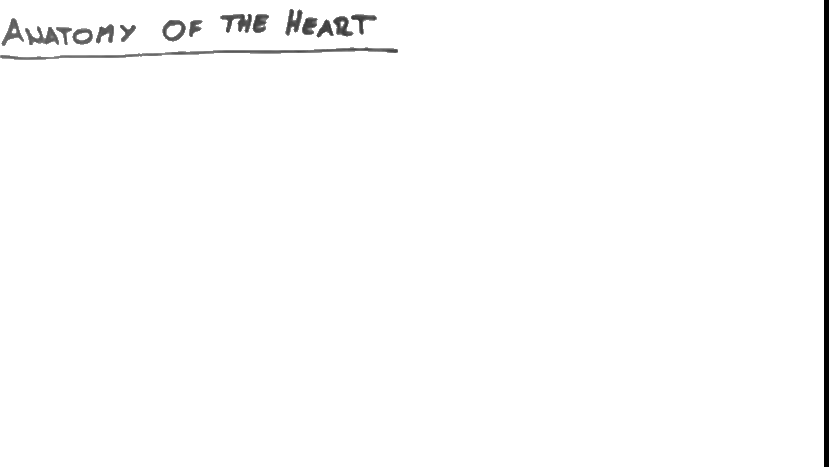 ANATOMY OF THE HEART